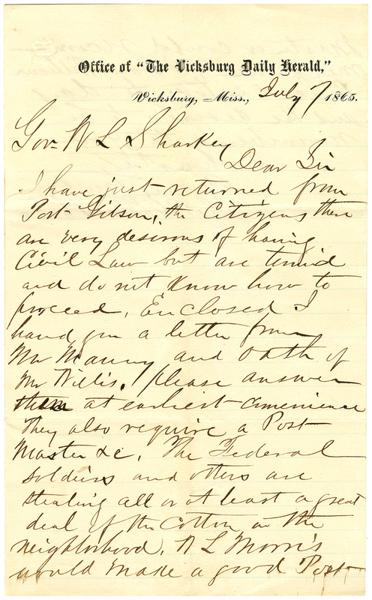 Office of "The Vicksburg Daily Herald,"
Vicksburg, Miss., July 7 1865.
Gov. W L Sharkey
Dear Sir
I have just returned from
Port Gibson, the Citizens there
are very desirous of having
Civil Law but are timid
and do not know how to
proceed, Enclosed I
hand you a letter from
Mr and Oath of
Mr Willis, please answer
them at earliest convenience
They also require a Post
Master &c. The Federal
soldiers and others are
stealing all or at least a great
deal of the Cotton in the
neighborhood. A L Morris
would make a good Post